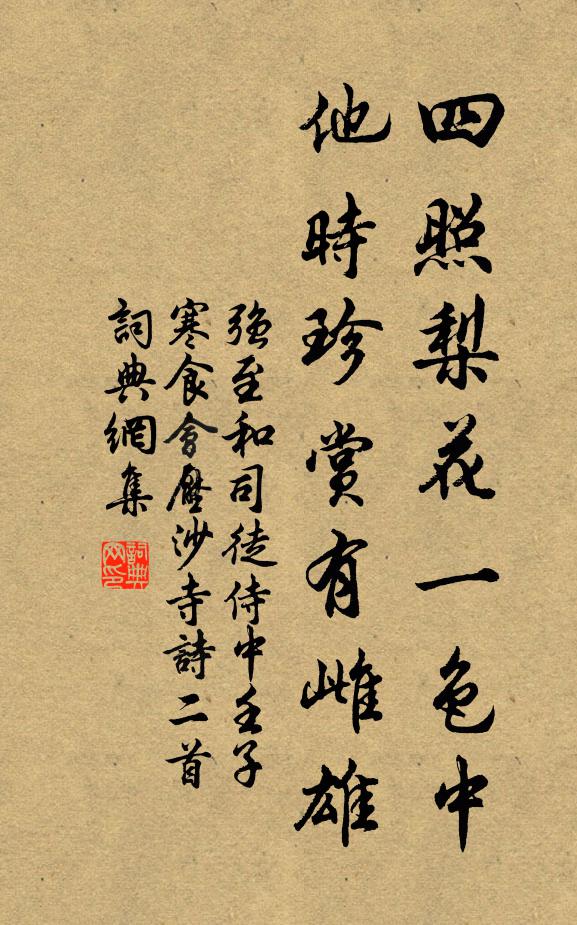 四照梨花一色中
他時珍賞有雌雄
強至和司徒侍中壬子
寒食會壓沙寺詩二首
詞典網集
詞典網印